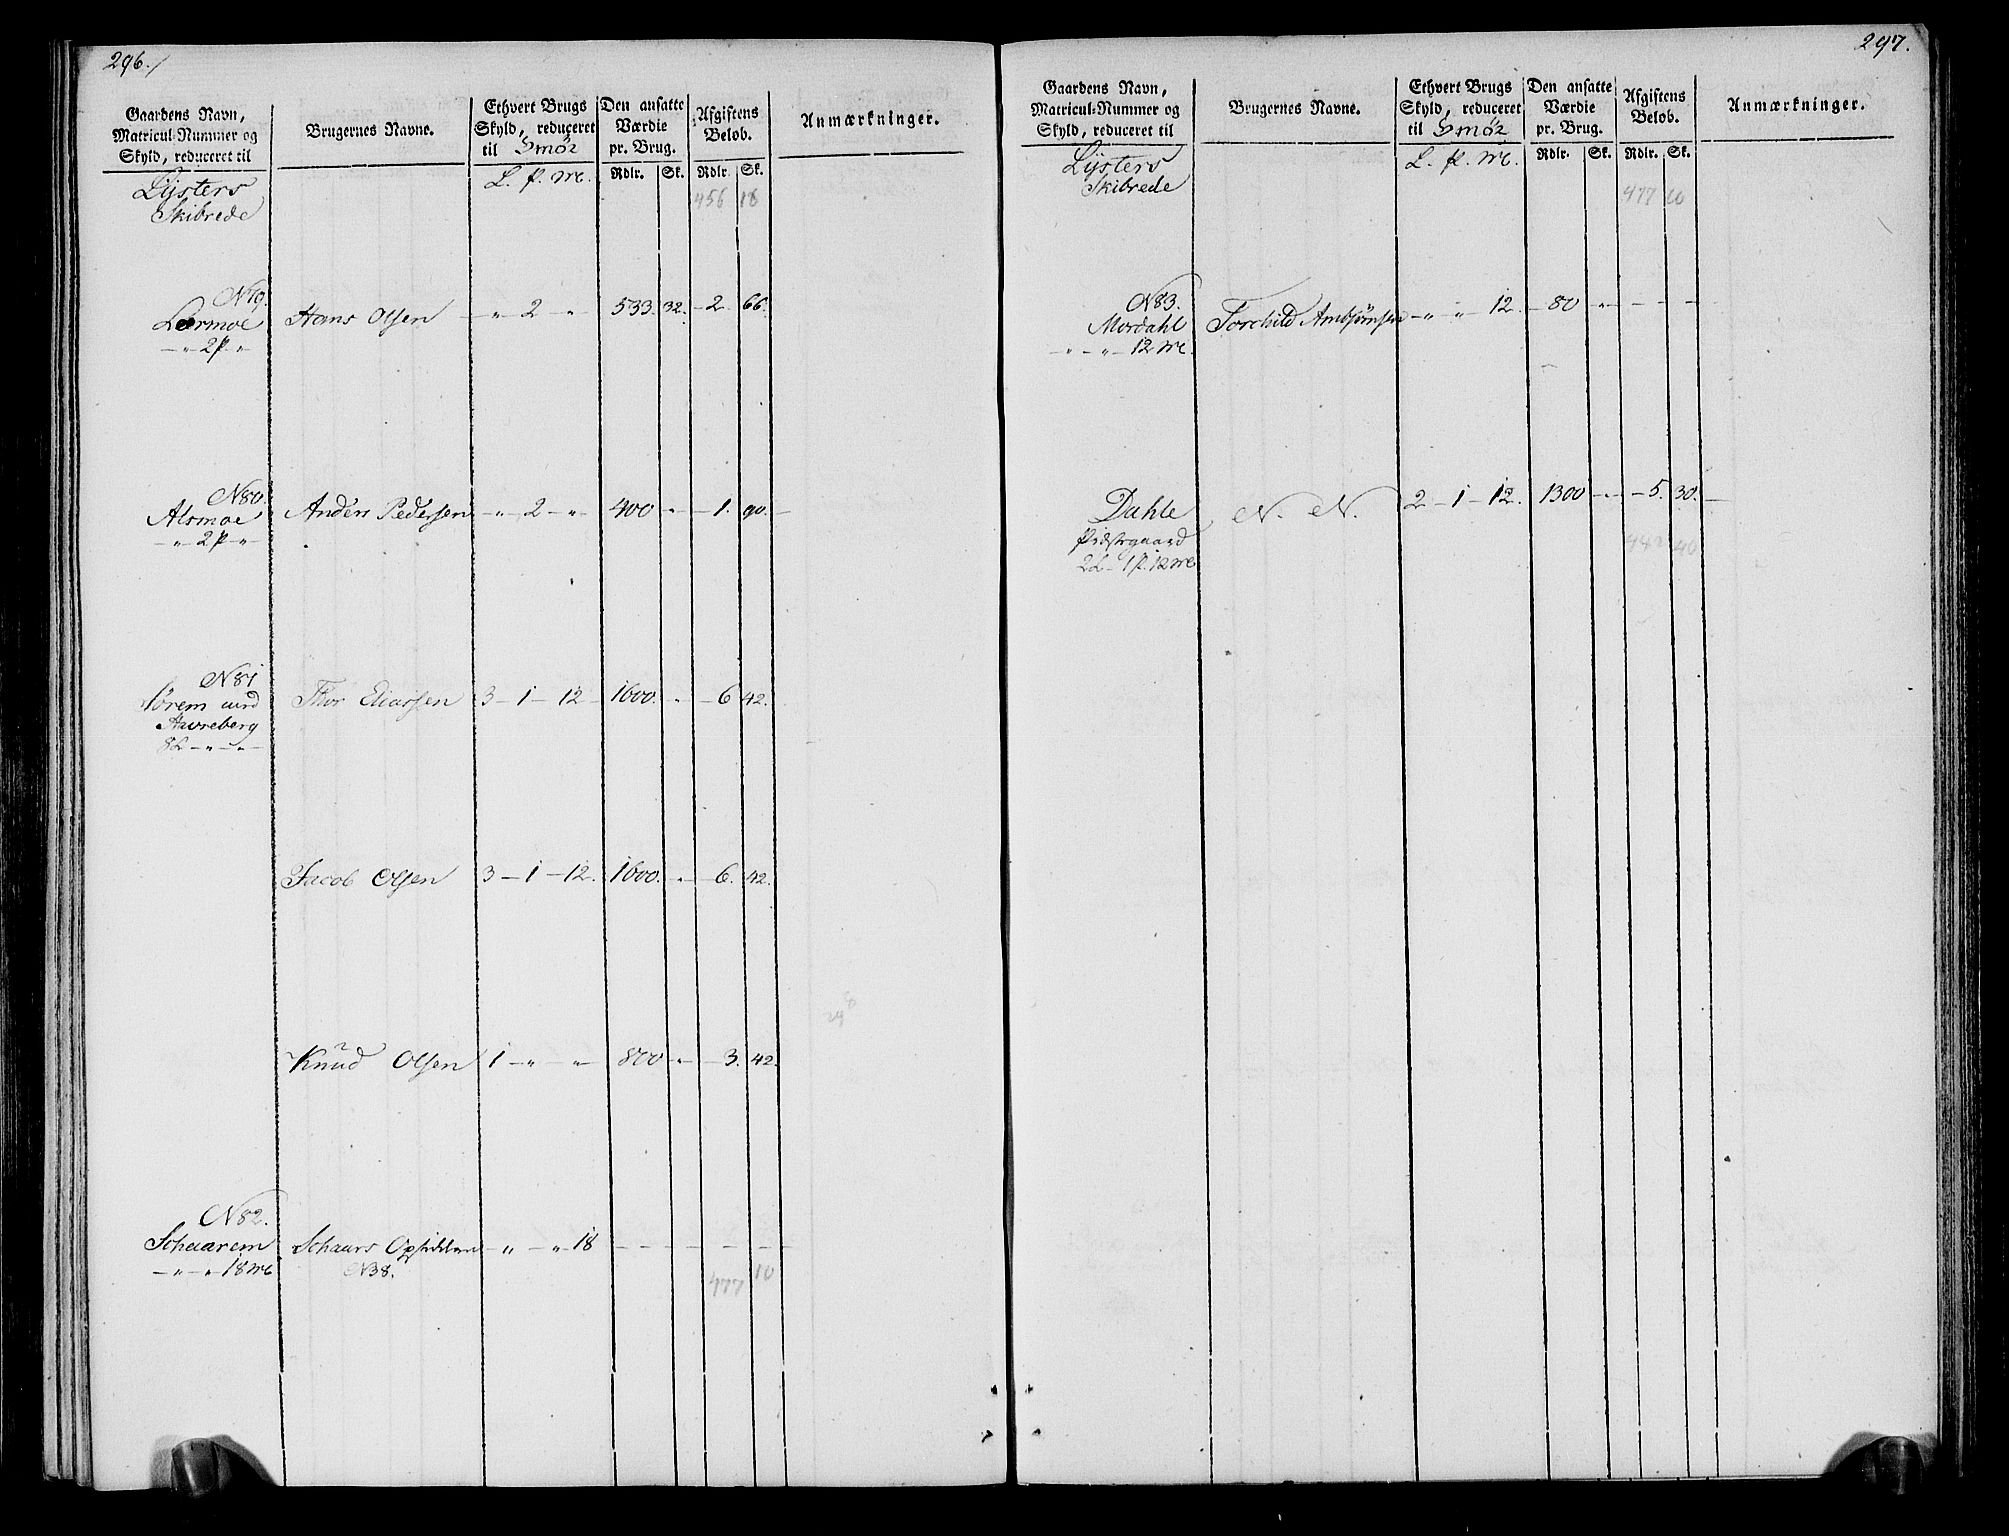 296./
Gaardens Navn,
Matricul-Nummer og
Skyld, reduceret til
Brugernes Navne.
Ethvert Brugs
Skyld, reduceret
til Smör
Den ansatte
Værdie
pr. Brug.
Afgiftens
Belob.
Anmærkninger.
L. p. mc.
Rdlr. Sk. Rdlr. Sk.
Lÿsters
Skibrede
456 18
N79.
Lærmoe Hans Olsen – „ 2 „ 533. 32. – 2. 66.
– „ – 2 p „
N80.
Alsmoe Anders Pedersen – „ – 2 – „ – 400 – „ – 1. 90. –
– „ – 2 p – „ –
N81
Sørem med Thor Eliassen 3 – 1 – 12 – 1600. – „ – 6 42.
Aureberg
8 L – „ – „ –
Jacob Olsen 3 – 1 – 12. 1600. – „ – 6. 42.
Knud Olsen 1 – „ – „ – 800 – „ – 3. 42.
N82.
Schaarem Schaars Opsidder – „ – „ 18 – – – – – –
– „ – „ 18 mc N38.
477 10
297.
Gaardens Navn,
Matricul-Nummer og
Skyld, reduceret til
Brugernes Navne.
Ethvert Brugs
Skyld, reduceret
til Smör
Den ansatte
Værdie
pr. Brug.
Afgiftens
Belob.
Anmærkninger.
L. p. mc.
Rdlr. Sk. Rdlr. Sk.
Lÿsters
Skibrede
477 10
N83.
Mordahl Torchild – „ „ 12. – 80 „ – – –
– „ – „ – 12 mc.
Dahle N. N. 2 – 1 – 12. 1300 – „ – 5. 30. –
Præstegaard
2 L – 1 p. 12 mc